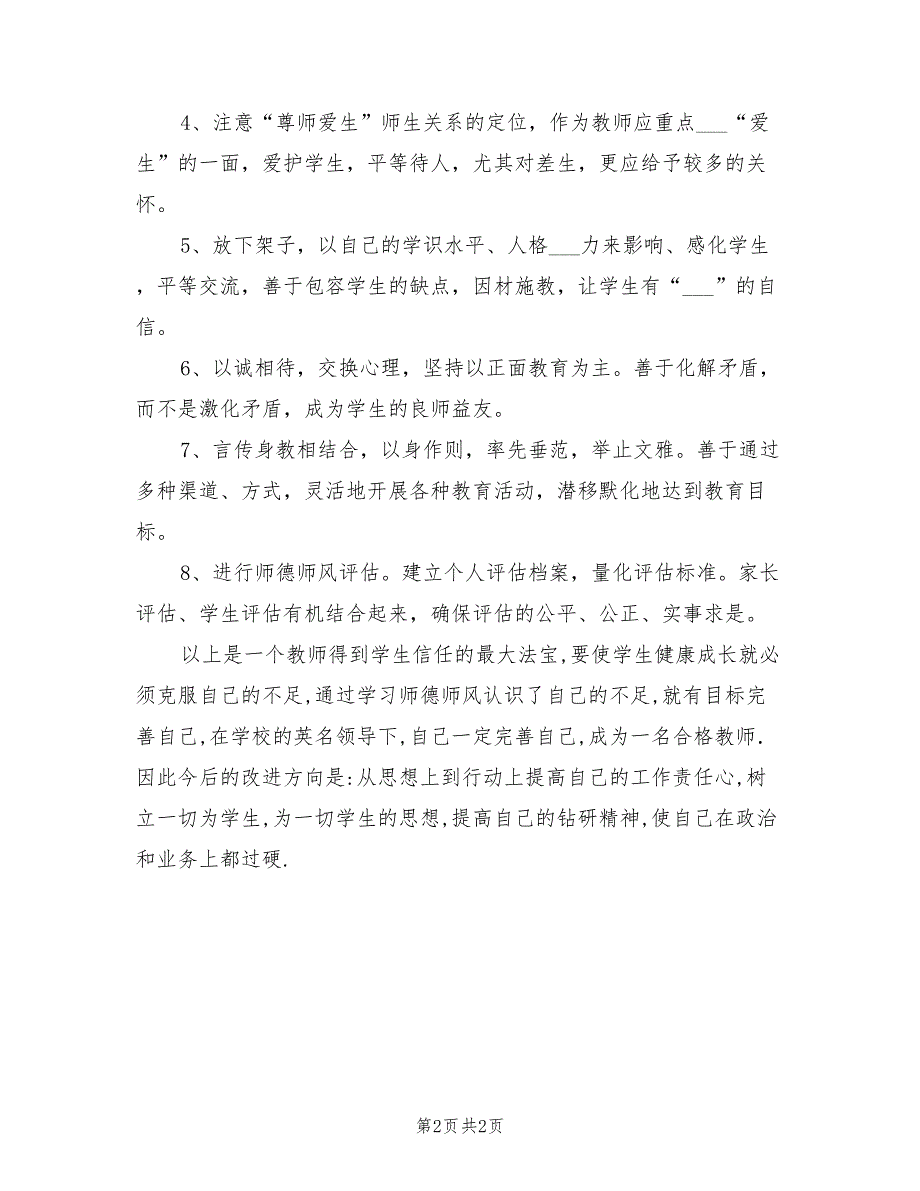 4、注意“尊师爱生”师生关系的定位，作为教师应重点___“爱
生”的一面，爱护学生，平等待人，尤其对差生，更应给予较多的关
怀。
5、放下架子，以自己的学识水平、人格___力来影响、感化学生
，平等交流，善于包容学生的缺点，因材施教，让学生有“___”的自
信。
6、以诚相待，交换心理，坚持以正面教育为主。善于化解矛盾，
而不是激化矛盾，成为学生的良师益友。
7、言传身教相结合，以身作则，率先垂范，举止文雅。善于通过
多种渠道、方式，灵活地开展各种教育活动，潜移默化地达到教育目
标。
8、进行师德师风评估。建立个人评估档案，量化评估标准。家长
评估、学生评估有机结合起来，确保评估的公平、公正、实事求是。
以上是一个教师得到学生信任的最大法宝,要使学生健康成长就必
须克服自己的不足,通过学习师德师风认识了自己的不足,就有目标完
善自己,在学校的英名领导下,自己一定完善自己,成为一名合格教师.
因此今后的改进方向是:从思想上到行动上提高自己的工作责任心,树
立一切为学生,为一切学生的思想,提高自己的钻研精神,使自己在政治
和业务上都过硬.
第2页 共2页